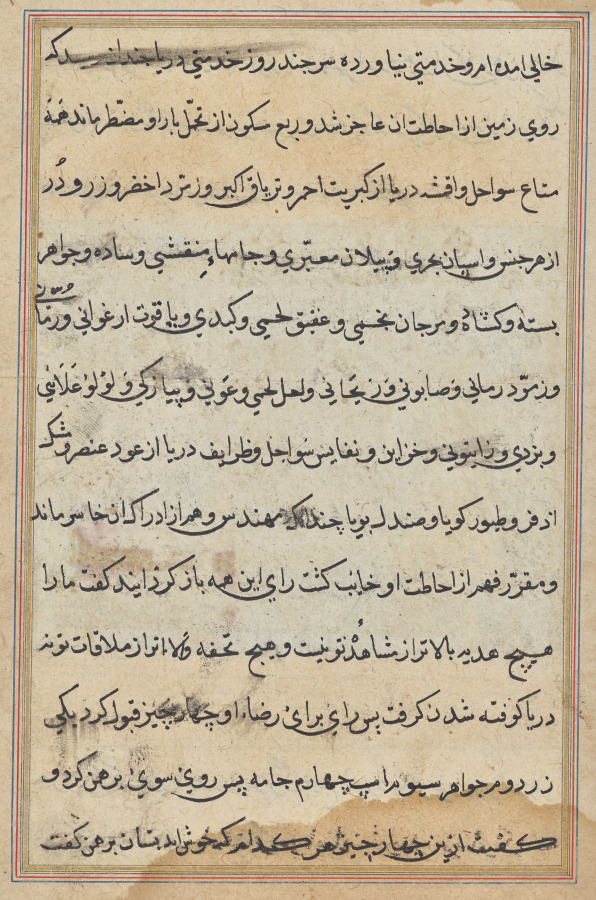 خالي امده ام و خدمتي نیاورده سر چند روز خدمتي دریا چندان رسید که
روي زمین از احاطت ان عاجز شد و ربع سکون از تحمّل بار او مضطر ماند همه
متاع سواحل و اقشه دریا از کبریت احمر و تریاق اکبر و زمرد اخضر و زر و دُر
از هر جنس و اسپان بحري و پیلان معبّري و جامهاء منقشي و ساده و جواهر
بسته و کشاده و مرجان و عقیق لحمي و کبدي و یاقوت ارغواني و رمّاني
و زمرّد رماني و صابوني و زیحاني و لعل لحمي و پیازکي و لولو
و یزدي و زیتوني و خزاین و نفایس سواحل و ظرایف دریا از عود عنصر و مشک
اذفر و طیور کویا و صندل بویا چندانکه مهندس وهم از ادراک ان خاسر ماند
و مقرّر فهم از احاطت او خایب کشت راي این همه باز کردانید کفت ما را
هیچ هدیه بالاتر از مشاهدهٔ تو نیست و هیچ تحفه والاتر از ملاقات تو نه
دریا کوفته شدن کرفت پس راي براي رضاء او چهار چیز قبول کرد یکي
زر دوم جواهر سیوم اسپ چهارم جامه پس روي سوي برهمن کرد و
کفت ازین چهار چیز هر کدام که خوش اید بستان برهمن کفت